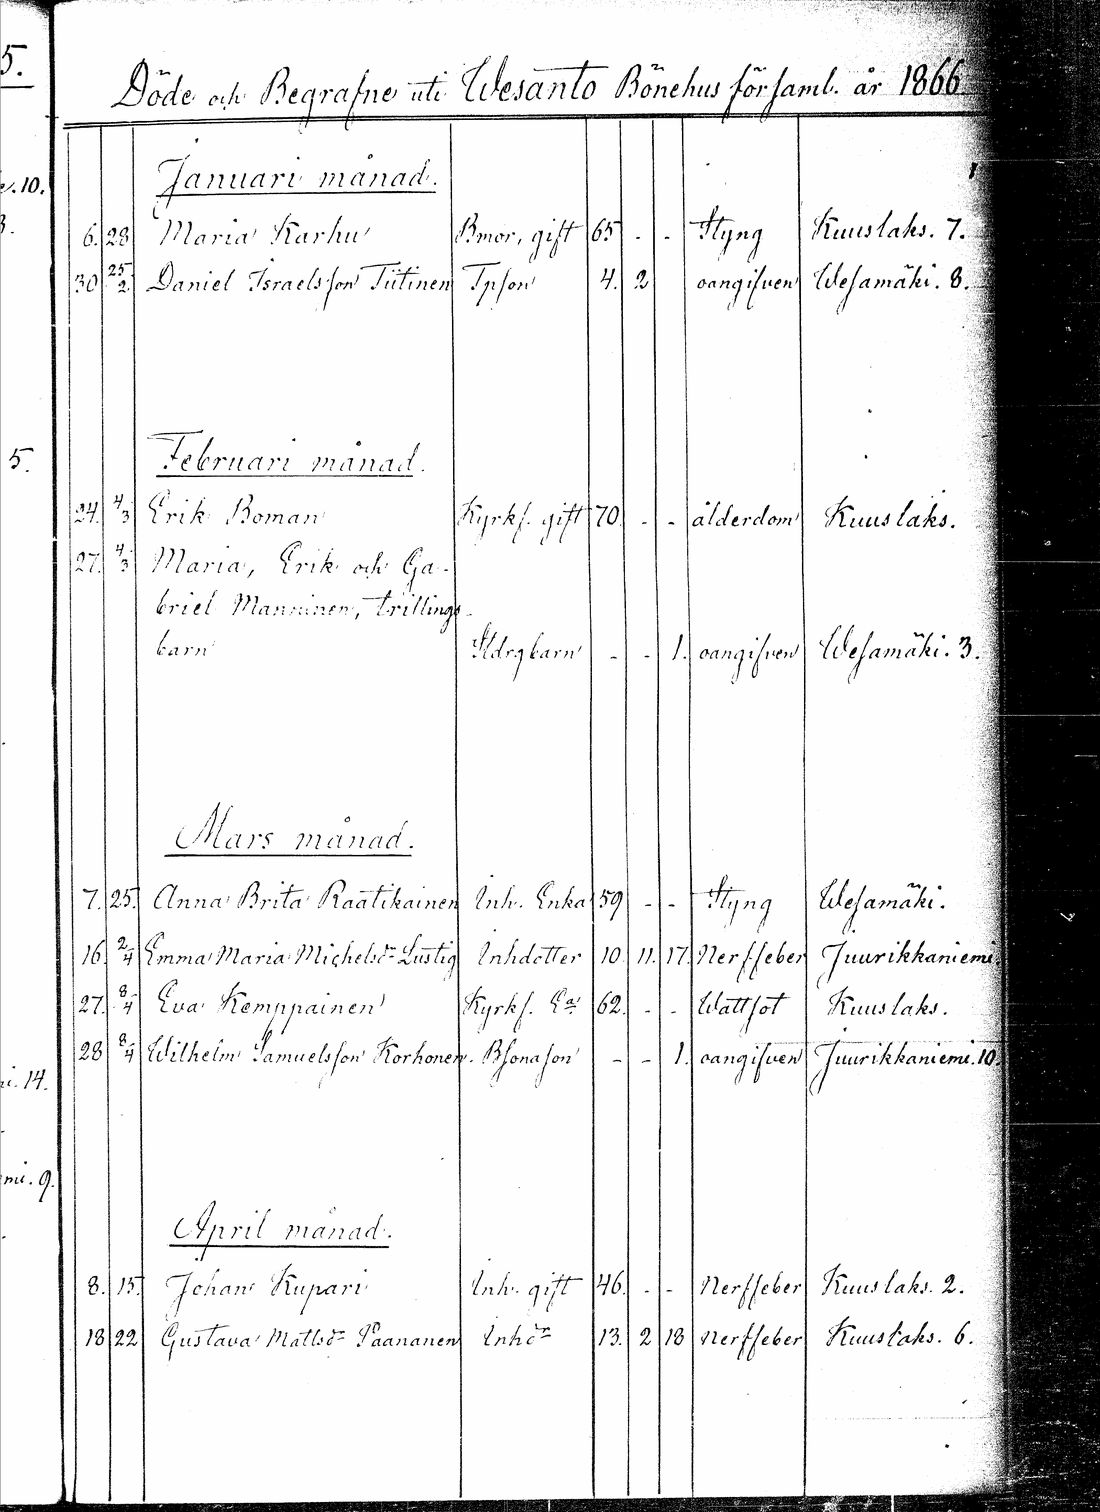 5.
Döde och Begrafne uti Wesanto Bönehus församl. år 1866
Januari månad.
6. 28 Maria Karhu Bmor, gift 65 - - Styng Kuuslaks. 7.
30 25/2. Daniel Israelsson Tiitinen Tpson 4. 2 oangifven Wesamäki. 8.
Februari månad.
24. 4/3 Erik Boman Kyrkf. gift 70. - - ålderdom Kuuslaks.
27. 4/3 Maria, Erik och Ga-
briel Manninen, trillings-
barn Stdrgbarn - - 1. oangifven Wesamäki. 3.
Mars månad.
7. 25. Anna Brita Raatikainen Inh. Enka 59 - - Styng Wesamäki.
16. 2/4 Emma Maria Michelsdr Lustig Inhdotter 10. 11. 17. Nerffeber Juurikkaniemi.
27. 8/4 Eva Kemppainen Kyrkf. Ea 62. - - Wattsot Kuuslaks.
28 8/4 Wilhelm Samuelsson Korhonen. Bsonason - - 1. oangifven Juurikkaniemi. 10.
April månad.
8. 15. Johan Kupari Inh. gift 46. - - Nerffeber Kuuslaks. 2.
18 22 Gustava Mattsdr Paananen Inhdr 13. 2 18 Nerffeber Kuuslaks. 6.
10.
5.
14.
mi. 9.